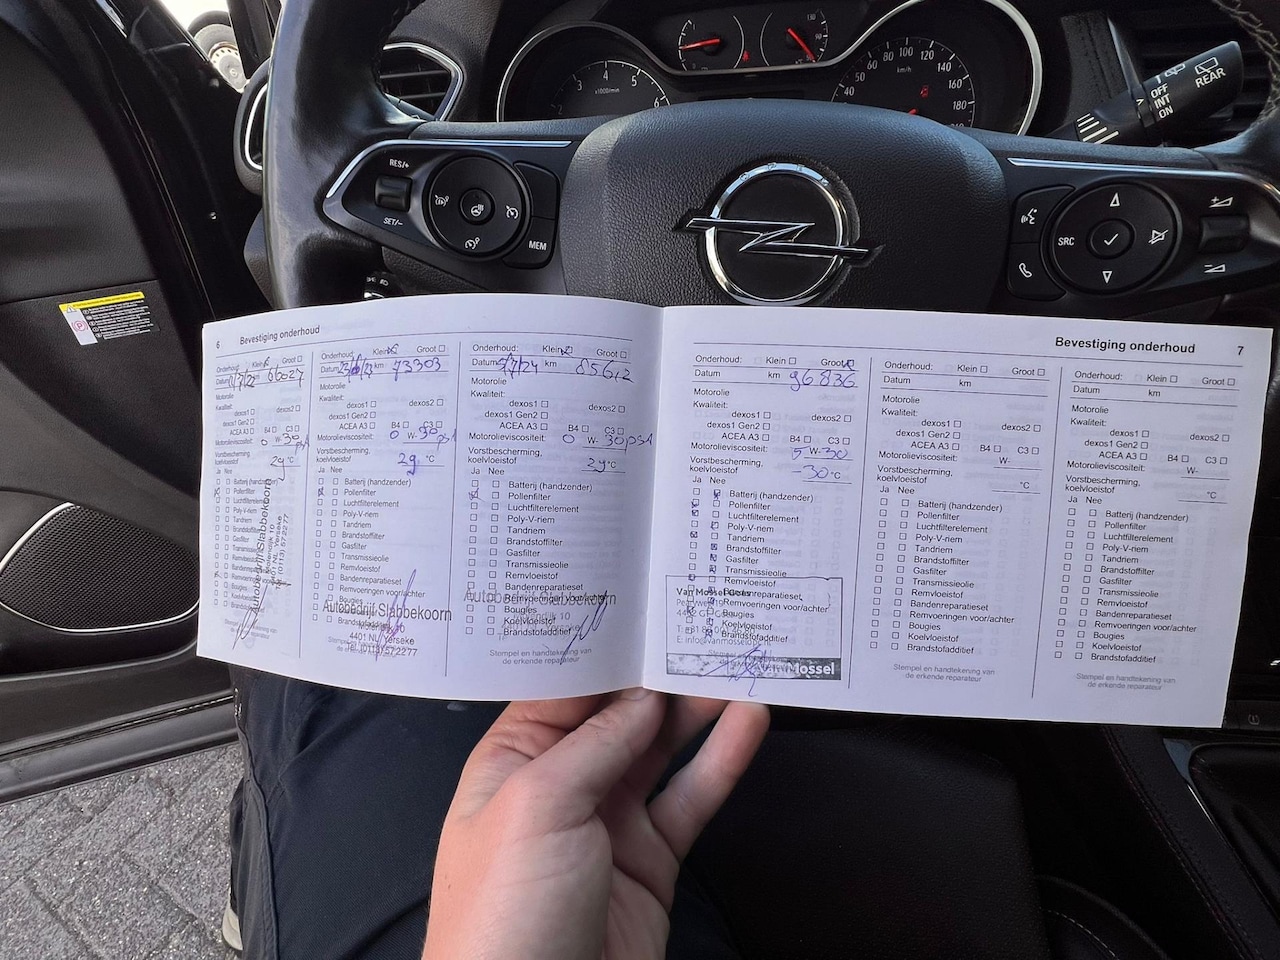 REAR
OFF
INT
ON
4
5
6
x1000/min
130
90
40
60
80
100
120
140
160
180
km/h
RES/+
SET/-
MEM
OPEL
SRC
6 Bevestiging onderhoud
Onderhoud: Klein Groot
Datum km 66027
Motorolie
Kwaliteit:
dexos1 dexos2
dexos1 Gen2
ACEA A3 B4 C3
Motorolieviscositeit: 0 W- 30 psa
Vorstbescherming,
koelvloeistof 29 °C
Ja Nee
Batterij (handzender)
Pollenfilter
Luchtfilterelement
Poly-V-riem
Tandriem
Brandstoffilter
Gasfilter
Autobedrijf Slabbekoorn
4401 NL Yerseke
Tel. (0113) 572277
Onderhoud: Klein Groot
Datum km 73303
Motorolie
Kwaliteit:
dexos1 dexos2
dexos1 Gen2
ACEA A3 B4 C3
Motorolieviscositeit: 0 W- 30 psa
Vorstbescherming,
koelvloeistof 29 °C
Ja Nee
Batterij (handzender)
Pollenfilter
Luchtfilterelement
Poly-V-riem
Tandriem
Brandstoffilter
Gasfilter
Transmissieolie
Remvloeistof
Bandenreparatieset
Remvoeringen voor/achter
Bougies
Autobedrijf Slabbekoorn
4401 NL Yerseke
Tel. (0113) 572277
Onderhoud: Klein Groot
Datum 5/7/24 km 85612
Motorolie
Kwaliteit:
dexos1 dexos2
dexos1 Gen2
ACEA A3 B4 C3
Motorolieviscositeit: 0 W- 30 psa
Vorstbescherming,
koelvloeistof 29 °C
Ja Nee
Batterij (handzender)
Pollenfilter
Luchtfilterelement
Poly-V-riem
Tandriem
Brandstoffilter
Gasfilter
Transmissieolie
Remvloeistof
Bandenreparatieset
Remvoeringen voor/achter
Autobedrijf Slabbekoorn
Bougies
Koelvloeistof
Brandstofadditief
Stempel en handtekening van
de erkende reparateur
Bevestiging onderhoud 7
Onderhoud: Klein Groot
Datum km 96836
Motorolie
Kwaliteit:
dexos1 dexos2
dexos1 Gen2
ACEA A3 B4 C3
Motorolieviscositeit: 5 W- 30
Vorstbescherming,
koelvloeistof -30 °C
Ja Nee
Batterij (handzender)
Pollenfilter
Luchtfilterelement
Poly-V-riem
Tandriem
Brandstoffilter
Gasfilter
Transmissieolie
Remvloeistof
Bandenreparatieset
Remvoeringen voor/achter
Bougies
Koelvloeistof
Brandstofadditief
Van Mossel
Onderhoud: Klein Groot
Datum km
Motorolie
Kwaliteit:
dexos1 dexos2
dexos1 Gen2
ACEA A3 B4 C3
Motorolieviscositeit: W-
Vorstbescherming,
koelvloeistof °C
Ja Nee
Batterij (handzender)
Pollenfilter
Luchtfilterelement
Poly-V-riem
Tandriem
Brandstoffilter
Gasfilter
Transmissieolie
Remvloeistof
Bandenreparatieset
Remvoeringen voor/achter
Bougies
Koelvloeistof
Brandstofadditief
Stempel en handtekening van
de erkende reparateur
Onderhoud: Klein Groot
Datum km
Motorolie
Kwaliteit:
dexos1 dexos2
dexos1 Gen2
ACEA A3 B4 C3
Motorolieviscositeit: W-
Vorstbescherming,
koelvloeistof °C
Ja Nee
Batterij (handzender)
Pollenfilter
Luchtfilterelement
Poly-V-riem
Tandriem
Brandstoffilter
Gasfilter
Transmissieolie
Remvloeistof
Bandenreparatieset
Remvoeringen voor/achter
Bougies
Koelvloeistof
Brandstofadditief
Stempel en handtekening van
de erkende reparateur